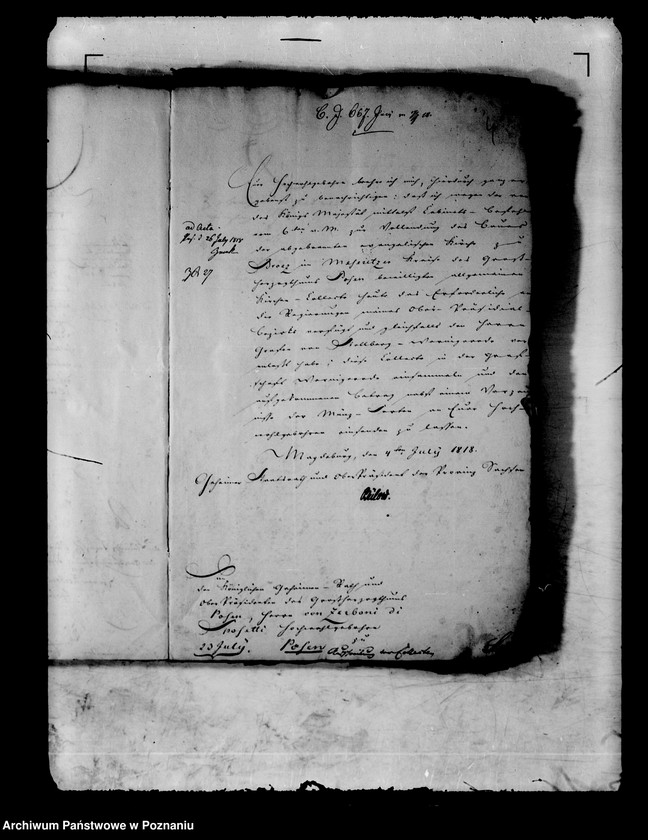 C. J. 667. Juni
Eur Hochwohlgeboren beehre ich mich, hierdurch ganz er-
gebenst zu benachrichtigen: daß ich wegen der von
des Königs Majestät mittelst Cabinets-Befehls
vom 6. v. M. zur Vollendung des Baues
der abgebrannten evangelischen Kirche zu
Broez im Meseritzer Kreise des Groß-
herzogthums Posen bewilligten allgemeinen
Kirchen-Collecte heute das Erforderliche an
die Regierungen meines Ober-Präsidial-
bezirks verfügt und gleichfalls den Herrn
Grafen von Stollberg-Wernigerode ver-
anlaßt habe; diese Collecte in der Graf-
schaft Wernigerode einsammeln und den
aufgekommenen Betrag nebst einem Verzeich-
nisse der Münz-Sorten an Eure Hoch-
wohlgeboren einsenden zu lassen.
ad Acta.
Pos. d 26 July 1818
Magdeburg, den 4ten July 1818.
Geheimer Staatsrath und OberPräsident der Provinz Sachsen
Bülow.
An
den Königlichen Geheimen-Rath und
Ober Präsidenten des Großherzogthums
Posen, Herrn von Zerboni di
Sposetti Hochwohlgeboren
zu
23 July. Posen
Archiwum Państwowe w Poznaniu